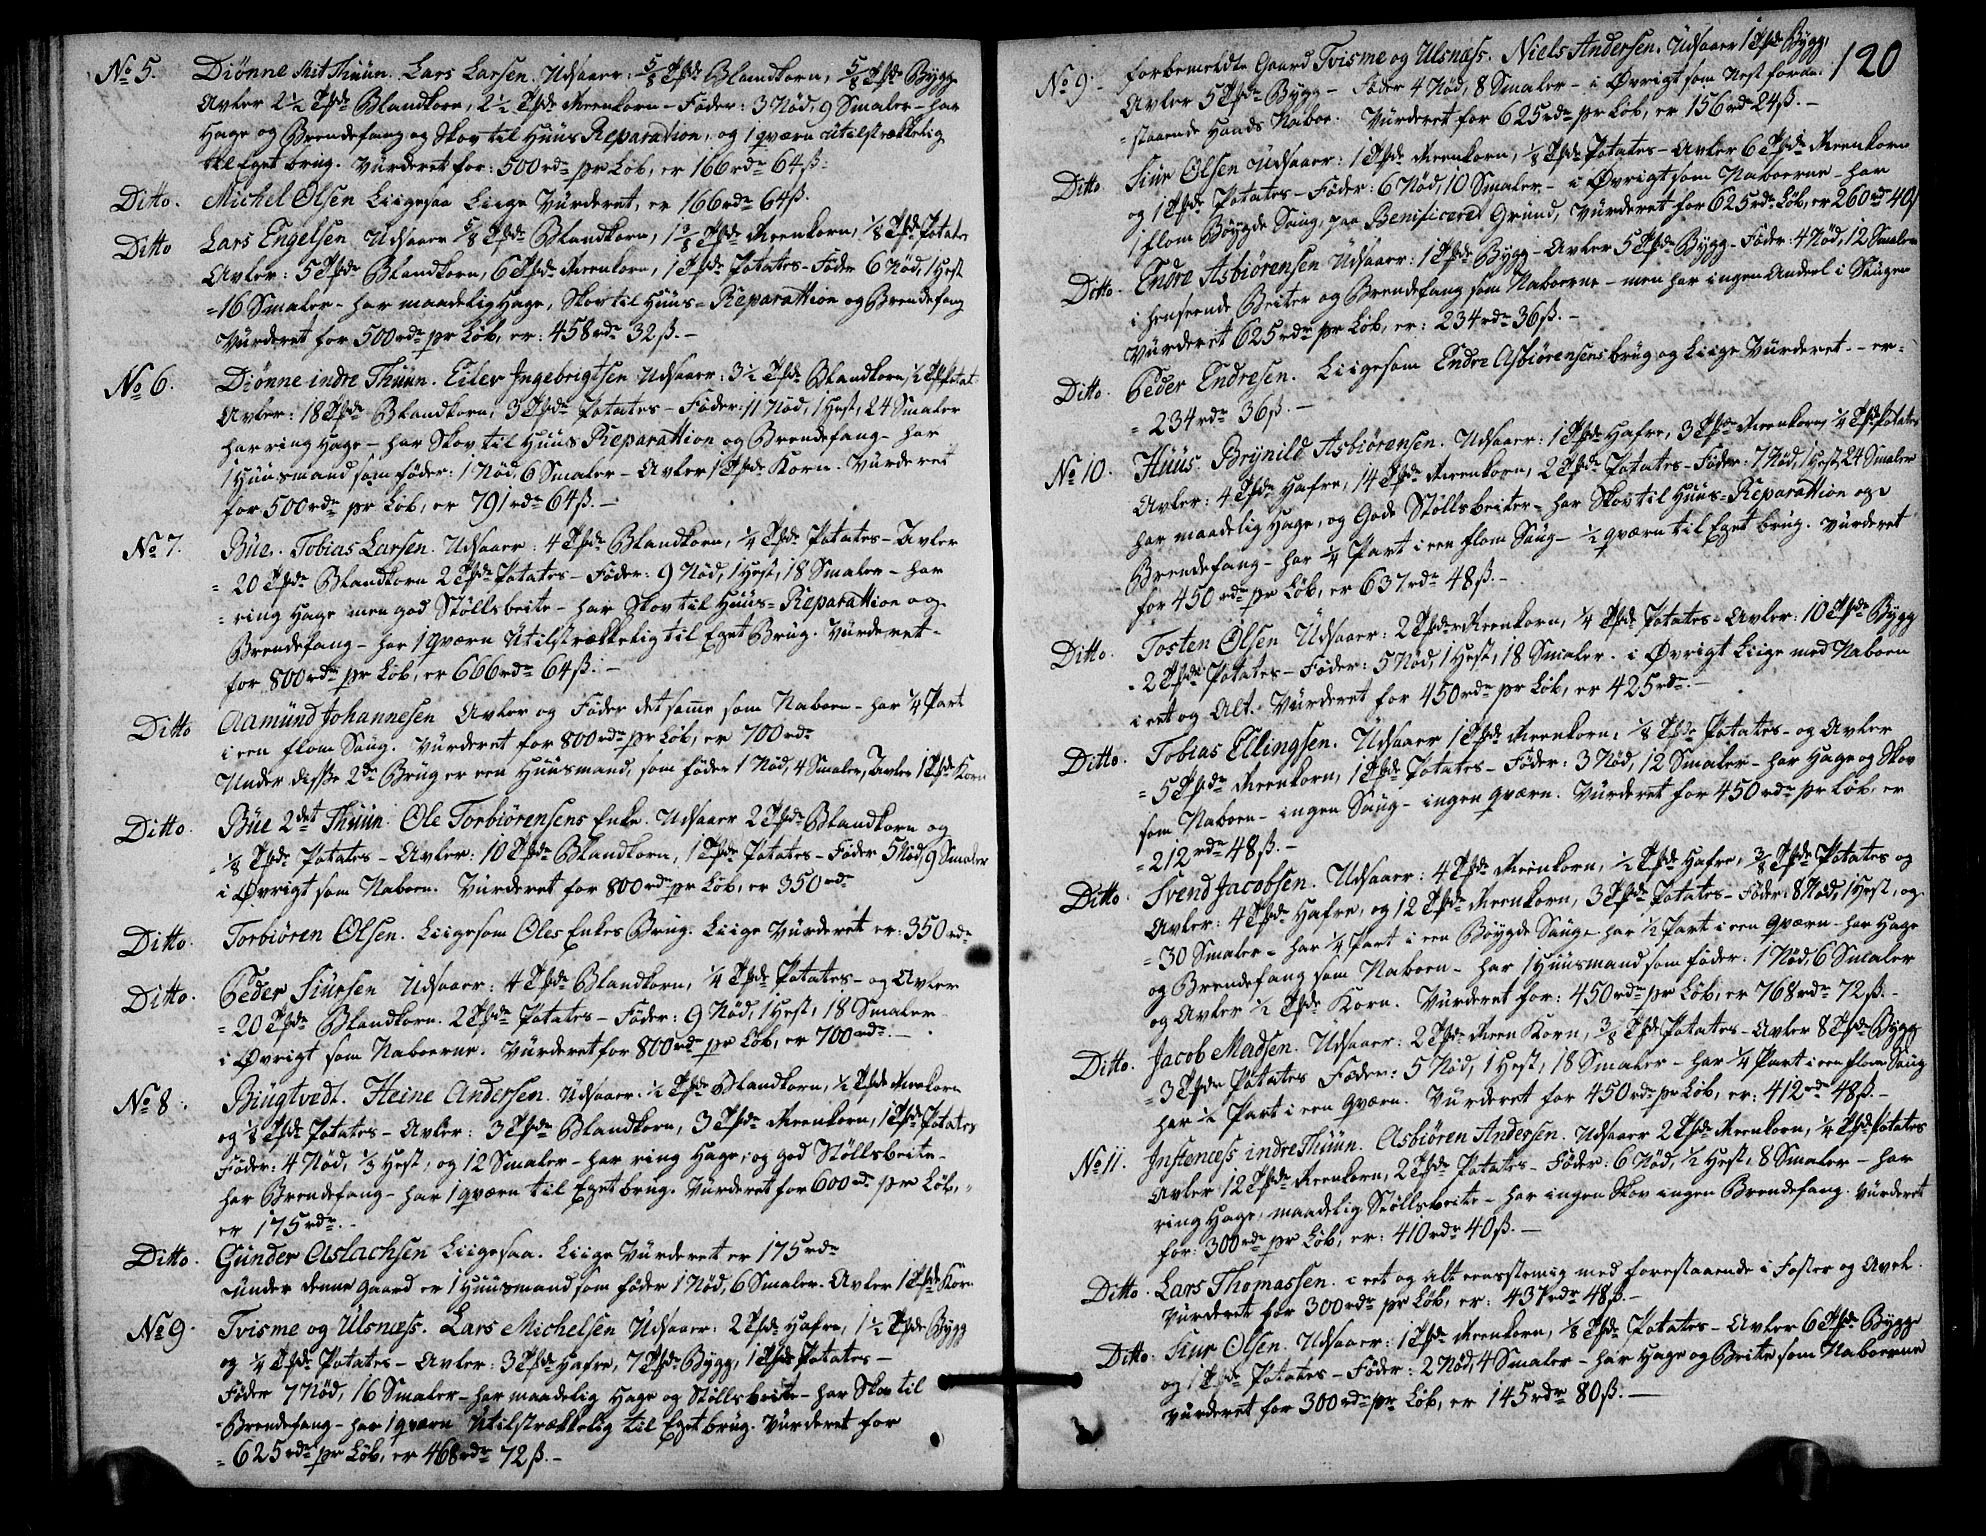 No 5. Diønne Mit Thuun. Lars Larsen. Udsaaer: 5/8 Tde Blandkorn, 5/8 Tde Bygg
Avler 2½ Tde Blandkorn, 2½ Tde Reenkorn - Føder: 3 Nød, 9 Smaler - har
Hage og Brendefang og Skov til Huus Reparation, og 1 qværn utilstrækkelig
til Eget brug. Vurderet for: 500 rdr pr Løb, er 166 rdr 64 ß.
Ditto. Michel Olsen Liigesaa Liige Vurderet, er 166 rdr 64 ß.
Ditto Lars Engelsen Udsaaer 5/8 Tde Blandkorn, 1 5/8 Tde Reenkorn, 1/8 Tde Potates
Avler: 5 Tde Blandkorn, 6 Tde Reenkorn, 1 Tde Potates - Føder 6 Nød, 1 Hest
= 16 Smaler - har maadelig Hage, Skov til Huus = Reparattion og Brendefang
Vurderet for 500 rdr pr Løb, er: 458 rdr 32 ß. -
No 6. Diønne indre Thuun. Eiler Ingebrigtsen Udsaaer: 3½ Tde Blandkorn, ½ Td Potat.
Avler: 18 Tde Blandkorn, 3 Tde Potates - Føder: 11 Nød, 1 Hest, 24 Smaler
har ring Hage - har Skov til Huus Reparattion og Brendefang - har
1 Huusmand som føder: 1 Nød, 6 Smaler - Avler 1 Tde Korn. Vurderet
for 500 rdr pr Løb, er 791 rdr 64 ß. -
No 7. Büe. Tobias Larsen. Udsaaer: 4 Tde Blandkorn, ¼ Tde Potates - Avler
= 20 Tde Blandkorn 2 Tde Potates - Føder: 9 Nød, 1 Hest, 18 Smaler - har
= ring Hage men god Støllsbeite - har Skov til Huus = Reparattion og
Brendefang - har 1 qværn Utilstrækkelig til Eget Brug. Vurderet -
for 800 rdr pr Løb, er 666 rdr 64 ß. -
Ditto Aamund Johannesen Avler og Føder det samme som Naboen - har ¼ Part
i een flom Saug. Vurderet for 800 rdr pr Løb, er 700 rdr
Under disse 2de Brug er een Huusmand, som føder 1 Nød, 4 Smaler, Avler 1 Tde Korn
Ditto. Büe 2det Thuun. Ole Torbiørensens Enke. Udsaaer 2 Tde Blandkorn og
= 1/8 Tde Potates - Avler: 10 Tde Blandkorn, 1 Tde Potates - Føder 5 Nød, 9 Smaler
i Øvrigt som Naboen. Vurderet for 800 rdr pr Løb, er 350 rdr
Ditto. Torbiøren Olsen. Liigesom Oles Enkes Brug. Liige Vurderet er: 350 rdr
Ditto. Peder Siursen Udsaaer: 4 Tde Blandkorn, ¼ Tde Potates - og Avler
= 20 Tde Blandkorn. 2 Tde Potates - Føder: 9 Nød, 1 Hest, 18 Smaler
i Øvrigt som Naboerne. Vurderet for 800 rdr pr Løb, er 700 rdr. -
No 8. Biugtvedt. Heine Andersen. Udsaaer: ½ Tde Blandkorn, ½ Tde Reenkorn
og 1/8 Tde Potates - Avler: 3 Tde Blandkorn, 3 Tde Reenkorn, 1 Tde Potates
Føder: 4 Nød, 1/3 Hest, og 12 Smaler - har ring Hage, og god Støllsbeite -
har Brendefang - har 1 qværn til Eget brug. Vurderet for 600 rdr pr Løb, =
er 175 rdr. -
Ditto. Gunder Aslachsen Liigesaa. Liige Vurderet er 175 rdr
Under denne Gaard er 1 Huusmand som føder 1 Nød, 6 Smaler. Avler 1 Tde Korn
No 9. Tvisme og Ulsnæss. Lars Michelsen Udsaaer: 2 Tde Hafre, 1½ Tde Bygg
og ¼ Tde Potates - Avler: 3 Tde Hafre, 7 Tde Bygg, 1 Tde Potates -
Føder 7 Nød, 16 Smaler - har maadelig Hage og Støllsbeite - har Skov til
= Brendefang - har 1 qværn Utilstrækkelig til Eget brug. Vurderet for
= 625 rdr pr Løb, er 468 rdr 72 ß. -
120
No 9. forbemeldte Gaard Tvisme og Ulsnæss. Niels Andersen. Udsaaer 1 Tde Bygg,
Avler 5 Tde Bygg - Føder 4 Nød, 8 Smaler - i Øvrigt som Nest foran
= staaende Hands Naboe. Vurderet for 625 rdr pr Løb, er 156 rdr 24 ß. -
Ditto Siur Olsen Udsaaer: 1 Tde Reenkorn, 1/8 Tde Potates - Avler 6 Tde Reenkorn
og 1 Tde Potates - Føder: 6 Nød, 10 Smaler - i Øvrigt som Naboerne - har
1 flom Bøygde Saug, paa Benificeret Grund, Vurderet for 625 rdr Løb, er 260 rdr 40 ß
Ditto. Endre Asbiørensen Udsaaer: 1 Tde Bygg - Avler 5 Tde Bygg - Føder: 4 Nød, 12 Smaler
i henseende Beiter og Brendefang som Naboerne - men har ingen Andeel i Saugen
Vurderet 625 rdr pr Løb, er: 234 rdr 36 ß. -
Ditto. Peder Endresen. Liigesom Endre Asbiørensens brug og Liige Vurderet. - er -
= 234 rdr 36 ß. -
No 10. Huus. Brynild Asbiørensen. Udsaaer: 1 Tde Hafre, 3 Tde Reenkorn, ¼ Tde Potates
Avler: 4 Tde Hafre, 14 Tde Reenkorn, 2 Tde Potates - Føder: 7 Nød, 1 Hest, 24 Smaler
har maadelig Hage, og Gode Støllsbeiter - har Skov til Huus - Reparattion og
Brendefang - har ¼ Part i een flom Saug - ½ qværn til Eget brug. Vurderet
for 450 rdr pr Løb, er 637 rdr 48 ß. -
Ditto. Tosten Olsen Udsaaer: 2 Tde Reenkorn, ¼ Tde Potates - Avler: 10 Tde Bygg
= 2 Tde Potates - Føder: 5 Nød, 1 Hest, 18 Smaler. i Øvrigt Liige med Naboen
i eet og Alt. Vurderet for 450 rdr pr Løb, er 425 rdr. -
Ditto. Tobias Ellingsen. Udsaaer 1 Tde Reenkorn, 1/8 Tde Potates - og Avler
= 5 Tde Reenkorn, 1 Tde Potates - Føder: 3 Nød, 12 Smaler - har Hage og Skov
som Naboen - ingen Saug - ingen qværn. Vurderet for 450 rdr pr Løb, er
= 212 rdr 48 ß. -
Ditto. Svend Jacobsen. Udsaaer: 4 Tde Reenkorn, ½ Tde Hafre, 3/8 Tde Potates og
Avler: 4 Tde Hafre, og 12 Tde Reenkorn, 3 Tde Potates - Føder: 8 Nød, 1 Hest, og
= 30 Smaler - har ¼ Part i een Bøygde Saug - har ½ Part i een qværn - har Hage
og Brendefang som Naboen - har 1 Huusmand som føder: 1 Nød, 6 Smaler
og Avler ½ Tde Korn. Vurderet for: 450 rdr pr Løb, er 768 rdr 72 ß. -
Ditto. Jacob Madsen. Udsaaer: 2 Tde Reen Korn, 3/8 Tde Potates - Avler 8 Tde Bygg
= 3 Tde Potates Føder: 5 Nød, 1 Hest, 18 Smaler - har ¼ Part i een flom Saug
har ½ Part i een qværn. Vurderet for 450 rdr pr Løb, er: 412 rdr 48 ß. -
No 11. Instenæss indre Thuun. Asbiøren Andersen. Udsaaer 2 Tde Reenkorn, ¼ Tde Potates
Avler 12 Tde Reenkorn, 2 Tde Potates - Føder: 6 Nød, ½ Hest, 8 Smaler - har
ring Hage, maadelig Støllsbeite - har ingen Skov ingen Brendefang. Vurderet
for: 300 rdr pr Løb, er: 410 rdr 40 ß. -
Ditto. Lars Thomassen. i eet og alt eensstemig med forestaaende i Foster og Avel.
Vurderet for 300 rdr pr Løb, er: 437 rdr 48 ß. -
Ditto. Siur Olsen. Udsaaer: 1 Tde Reenkorn, 1/8 Tde Potates - Avler 6 Tde Bygg
og 1 Tde Potates - Føder: 2 Nød, 4 Smaler - har Hage og Beite som Naboerne
Vurderet for 300 rdr pr Løb, er 145 rdr 80 ß. -